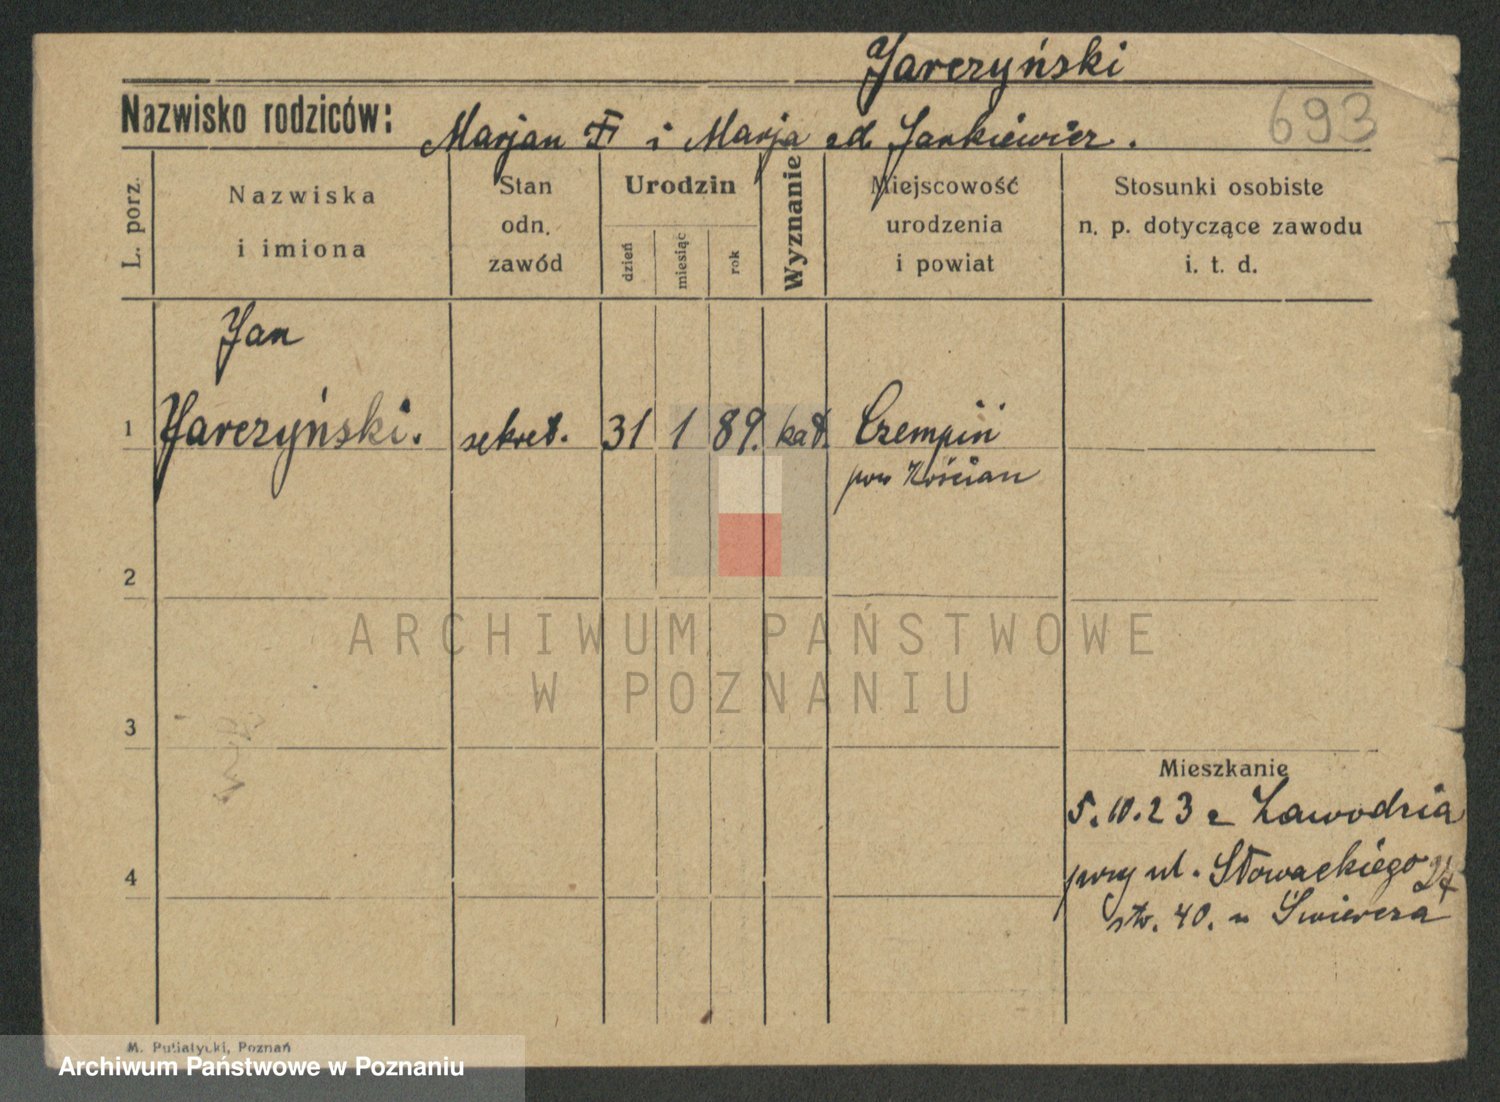 Jarczyński
693
Nazwisko rodziców: Marjan i Marja Jankiewicz.
L. porz.
Nazwiska i imiona
Stan odn. zawód
Urodzin
dzień
miesiąc
rok
Wyznanie
Miejscowość urodzenia i powiat
Stosunki osobiste n. p. dotyczące zawodu i. t. d.
Jan
1 Jarczyński. sekret. 31 1 89. kat. Czempiń
pow Kościan
2
3
4
Mieszkanie
5.10.23 z Zawodzia
przy ul. Słowackiego
str. 40. u Świercza
ARCHIWUM PAŃSTWOWE
W POZNANIU
M. Putiatycki, Poznań
Archiwum Państwowe w Poznaniu